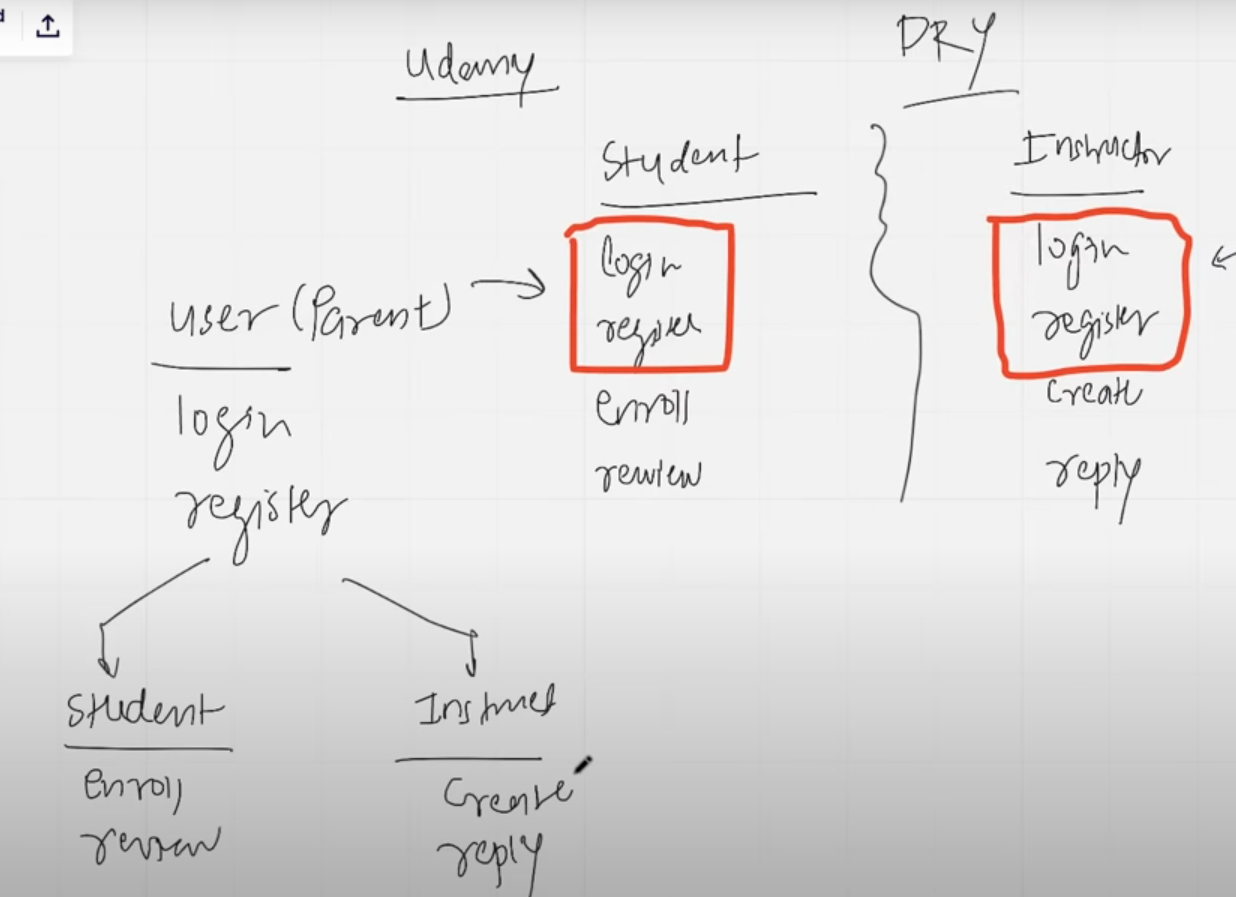 Udemy
DRY
Student
Instructor
login
register
enroll
review
login
register
create
reply
user (Parent)
login
register
Student
enroll
review
Instruct
Create
reply